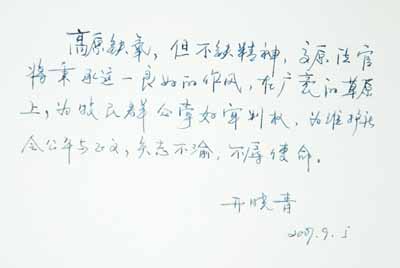 高原缺氧，但不缺精神，高原法官
将秉承这一良好的作风，在广袤的草原
上，为牧民群众掌好审判权，为维护社
会公平与正义，矢志不渝，不辱使命。
晓青
2007.9.5